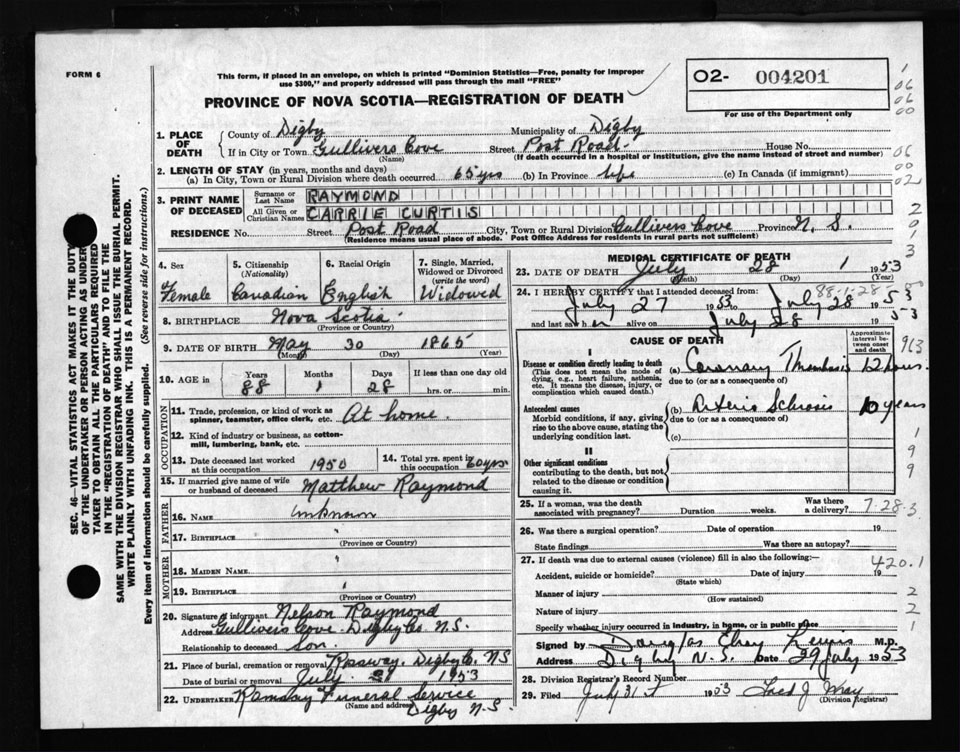 FORM 6
This form, if placed in an envelope, on which is printed "Dominion Statistics—Free, penalty for improper
use $300," and properly addressed will pass through the mail "FREE"
O2- 004201
PROVINCE OF NOVA SCOTIA—REGISTRATION OF DEATH
For use of the Department only
1. PLACE OF DEATH
County of Digby Municipality of Digby
If in City or Town Gullivers Cove Street Post Road House No.
(Name) (If death occurred in a hospital or institution, give the name instead of street and number)
2. LENGTH OF STAY (in years, months and days)
(a) In City, Town or Rural Division where death occurred 65 yrs (b) In Province life (c) In Canada (if immigrant)
3. PRINT NAME OF DECEASED
Surname or Last Name RAYMOND
All Given or Christian Names CARRIE CURTIS
RESIDENCE No. Street Post Road City, Town or Rural Division Gullivers Cove Province N. S.
(Residence means usual place of abode. Post Office Address for residents in rural parts not sufficient)
4. Sex
Female
5. Citizenship (Nationality)
Canadian
6. Racial Origin
English
7. Single, Married, Widowed or Divorced (write the word)
Widowed
8. BIRTHPLACE Nova Scotia
(Province or Country)
9. DATE OF BIRTH May 30 1865
(Month) (Day) (Year)
10. AGE in Years Months Days If less than one day
88 1 28 hrs. or min.
OCCUPATION
11. Trade, profession, or kind of work as spinner, teamster, office clerk, etc. At home.
12. Kind of industry or business, as cotton-mill, lumbering, bank, etc.
13. Date deceased last worked at this occupation 1950
14. Total yrs. spent in this occupation 60 yrs
15. If married give name of wife or husband of deceased Matthew Raymond
FATHER
16. NAME unknown
17. BIRTHPLACE "
(Province or Country)
MOTHER
18. MAIDEN NAME "
19. BIRTHPLACE "
(Province or Country)
20. Signature of informant Nelson Raymond
Address Gullivers Cove Digby Co. N.S.
Relationship to deceased son.
21. Place of burial, cremation or removal Rossway, Digby Co. NS
Date of burial or removal July 1953
22. UNDERTAKER Ramsay Funeral Service
(Name and address) Digby N.S.
MEDICAL CERTIFICATE OF DEATH
23. DATE OF DEATH July 28 1953
(Month) (Day)
24. I HEREBY CERTIFY that I attended deceased from:
88-1-28
July 27 1953 to July 28 1953
and last saw her alive on July 28 1953
CAUSE OF DEATH
Approximate interval between onset and death
I
Disease or condition directly leading to death
(This does not mean the mode of dying, e.g., heart failure, asthenia, etc. It means the disease, injury, or complication which caused death.)
(a) Coronary Thrombosis 12 hours.
due to (or as a consequence of)
Antecedent causes
Morbid conditions, if any, giving rise to the above cause, stating the underlying condition last.
(b) Arterio Schrosis 10 years
due to (or as a consequence of)
(c)
II
Other significant conditions
contributing to the death, but not related to the disease or condition causing it.
25. If a woman, was the death associated with pregnancy? Duration weeks. Was there a delivery? 7-28-3
26. Was there a surgical operation? Date of operation 19
State findings Was there an autopsy?
27. If death was due to external causes (violence) fill in also the following:
420.1
Accident, suicide or homicide? Date of injury 19
(State which)
Manner of injury
(How sustained)
Nature of injury
Specify whether injury occurred in industry, in home, or in public place
Signed by Douglas Lewis M.D.
Address Digby N.S. Date 29 July 1953
28. Division Registrar's Record Number
29. Filed July 31st 1953
(Division Registrar)
SEC. 46—VITAL STATISTICS ACT MAKES IT THE DUTY
OF THE UNDERTAKER OR PERSON ACTING AS UNDER-
TAKER TO OBTAIN ALL THE PARTICULARS REQUIRED
IN THE "REGISTRATION OF DEATH" AND TO FILE THE
SAME WITH THE DIVISION REGISTRAR WHO SHALL ISSUE THE BURIAL PERMIT.
WRITE PLAINLY WITH UNFADING INK. THIS IS A PERMANENT RECORD.
Every item of information should be carefully supplied. (See reverse side for instructions.)
1
06
06
00
06
00
02
2
0
1
3
913
1
9
9
2
2
1